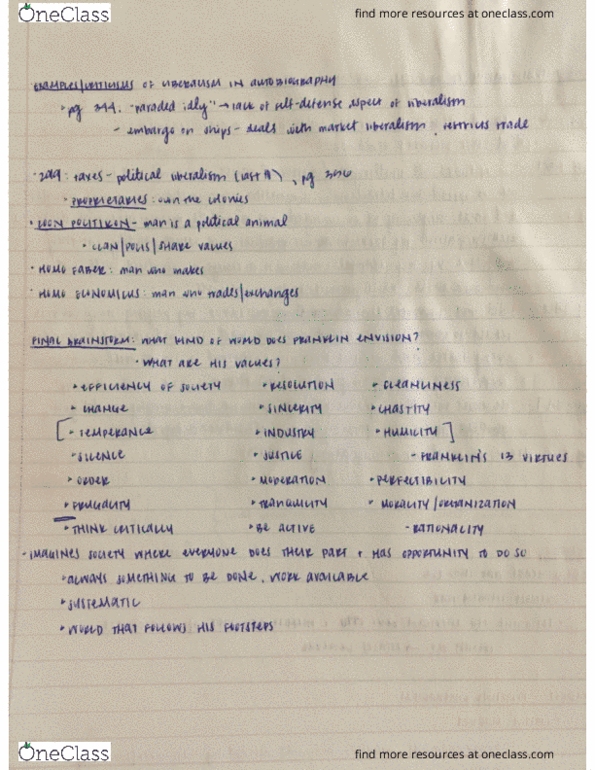 OneClass
find more resources at oneclass.com
EXAMPLES/CRITICISMS OF LIBERALISM IN AUTOBIOGRAPHY
• pg 344. "paraded idly" → lack of self-defense aspect of liberalism
- embargo on ships - deals with market liberalism, restricts trade
• 299: taxes - political liberalism (last ¶), pg
• PROPRIETARIES: own the colonies
• ZOON POLITIKON - man is a political animal
• CLAN/POLIS/SHARE VALUES
• HOMO FABER: man who makes
• HOMO ECONOMICUS: man who trades/exchanges
FINAL BRAINSTORM: WHAT KIND OF WORLD DOES FRANKLIN ENVISION?
• WHAT ARE HIS VALUES?
• EFFICIENCY OF SOCIETY • RESOLUTION • CLEANLINESS
• CHANGE • SINCERITY • CHASTITY
[ • TEMPERANCE • INDUSTRY • HUMILITY ]
• SILENCE • JUSTICE - FRANKLIN'S 13 VIRTUES
• ORDER • MODERATION • PERFECTIBILITY
• FRUGALITY • TRANQUILITY • MORALITY/ORGANIZATION
• THINK CRITICALLY • BE ACTIVE - RATIONALITY
• IMAGINES SOCIETY WHERE EVERYONE DOES THEIR PART + HAS OPPORTUNITY TO DO SO
• ALWAYS SOMETHING TO BE DONE, WORK AVAILABLE
• SYSTEMATIC
• WORLD THAT FOLLOWS HIS FOOTSTEPS
OneClass
find more resources at oneclass.com